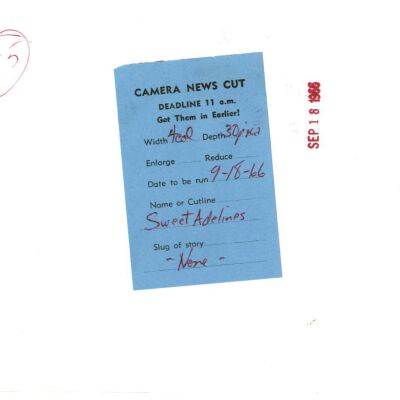 CAMERA NEWS CUT
DEADLINE 11 a.m.
Get Them in Earlier!
Width 4col Depth 30picas
Enlarge Reduce
Date to be run 9-18-66
Name or Cutline
Sweet Adelines
Slug of story
- None -
SEP 18 1966